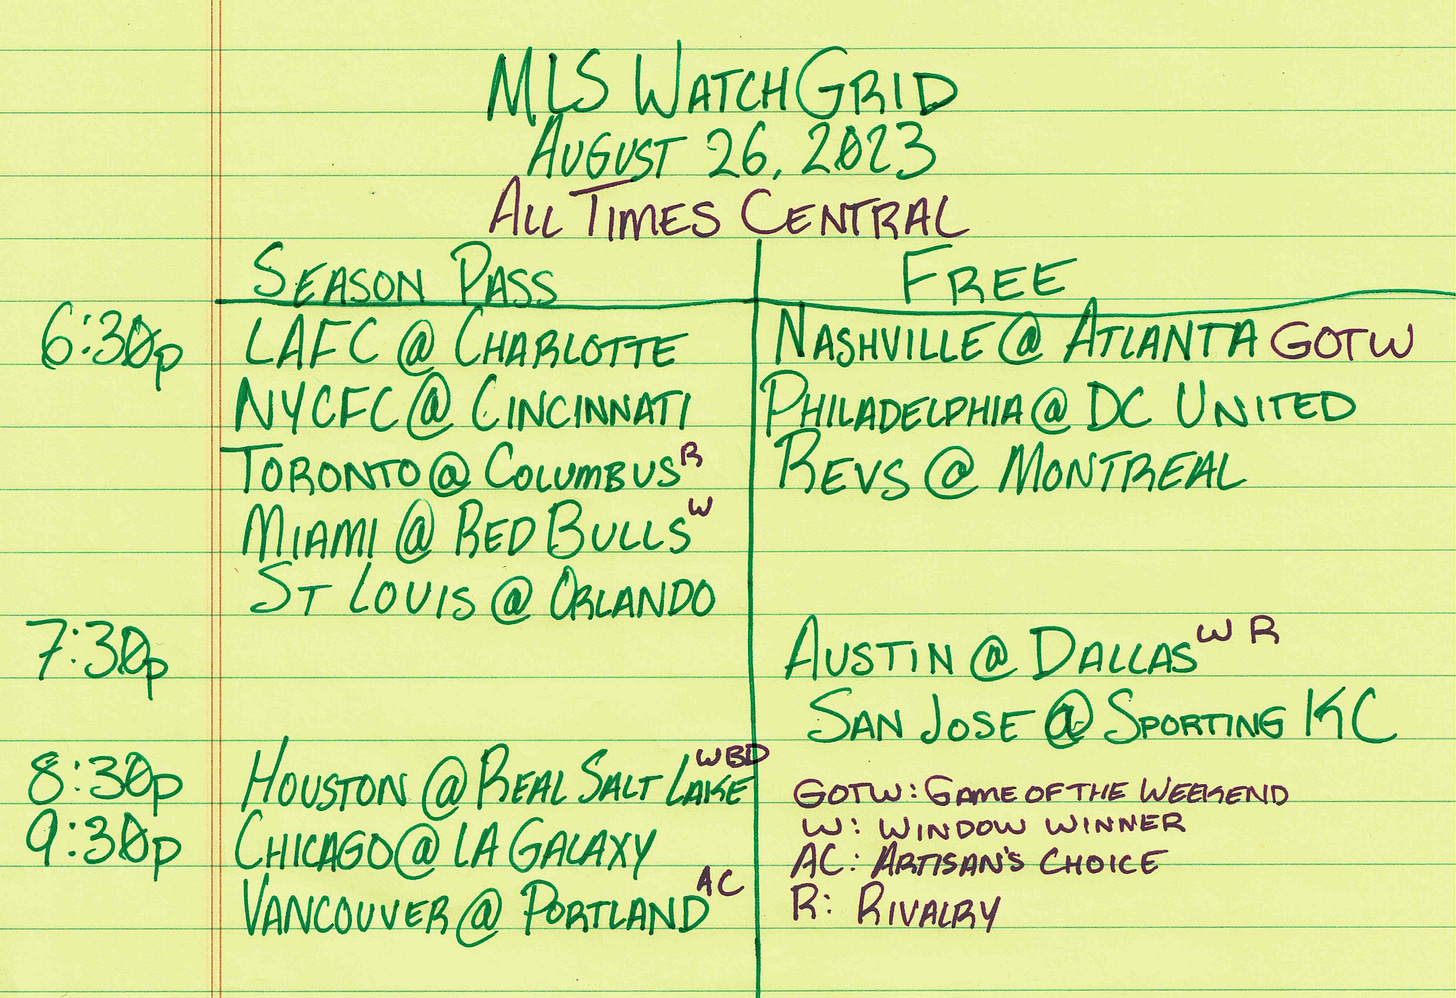 MLS WATCHGRID
AUGUST 26, 2023
ALL TIMES CENTRAL
SEASON PASS FREE
6:30p LAFC @ CHARLOTTE NASHVILLE @ ATLANTA GOTW
NYCFC @ CINCINNATI PHILADELPHIA @ DC UNITED
TORONTO @ COLUMBUS R REVS @ MONTREAL
MIAMI @ RED BULLS W
ST LOUIS @ ORLANDO
7:30p AUSTIN @ DALLAS W R
SAN JOSE @ SPORTING KC
8:30p HOUSTON @ REAL SALT LAKE WBD
GOTW: GAME OF THE WEEKEND
9:30p CHICAGO @ LA GALAXY
W: WINDOW WINNER
AC: ARTISAN'S CHOICE
VANCOUVER @ PORTLAND AC
R: RIVALRY